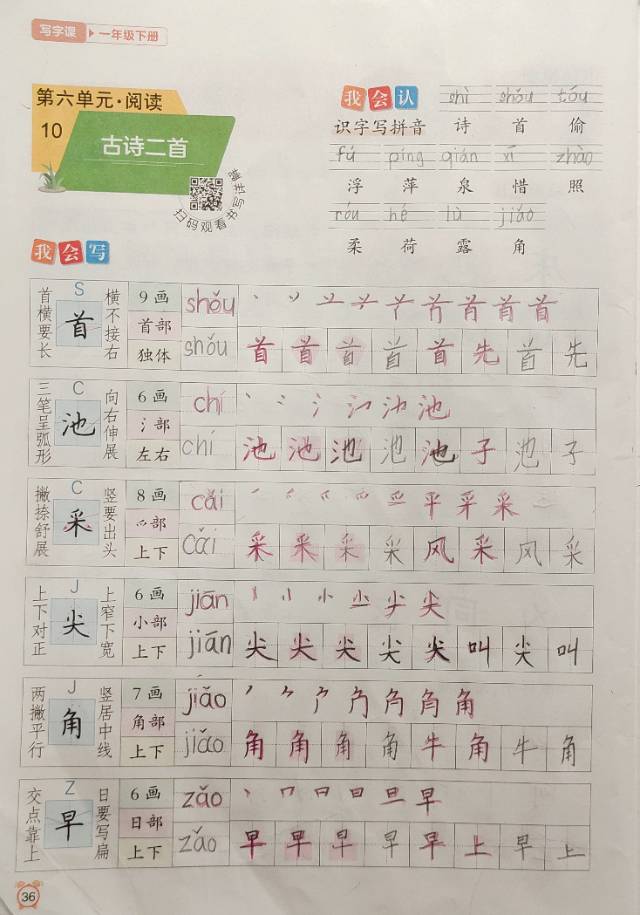 写字课 一年级下册
第六单元·阅读
10 古诗二首
扫码观看书写讲解
我会认
shì shǒu tóu
识字写拼音 诗 首 偷
fú píng qián xī zhào
浮 萍 泉 惜 照
róu hé lù jiǎo
柔 荷 露 角
我会写
首横要长 S 首 横不接右 9画 首部 独体 shǒu
shǒu 首 首 首 首 首 先 首 先
三笔呈弧形 C 池 向右伸展 6画 氵部 左右 chí
chí 池 池 池 池 池 子 池 子
撇捺舒展 C 采 竖要出头 8画 爫部 上下 cǎi
cǎi 采 采 采 采 风 采 风 采
上下对正 J 尖 上窄下宽 6画 小部 上下 jiān
jiān 尖 尖 尖 尖 尖 叫 尖 叫
两撇平行 J 角 竖居中线 7画 角部 上下 jiǎo
jiǎo 角 角 角 角 牛 角 牛 角
交点靠上 Z 早 日要写扁 6画 日部 上下 zǎo
zǎo 早 早 早 早 早 上 早 上
36